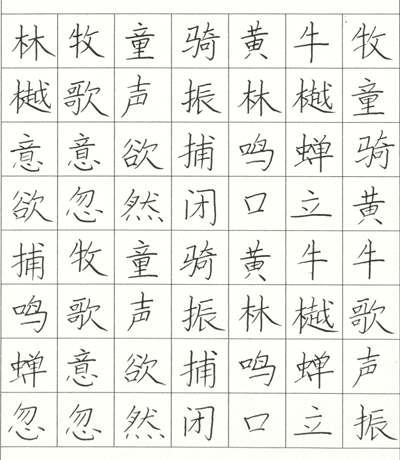 林牧童骑黄牛牧
樾歌声振林樾童
意意欲捕鸣蝉骑
欲忽然闭口立黄
捕牧童骑黄牛牛
鸣歌声振林樾歌
蝉意欲捕鸣蝉声
忽忽然闭口立振